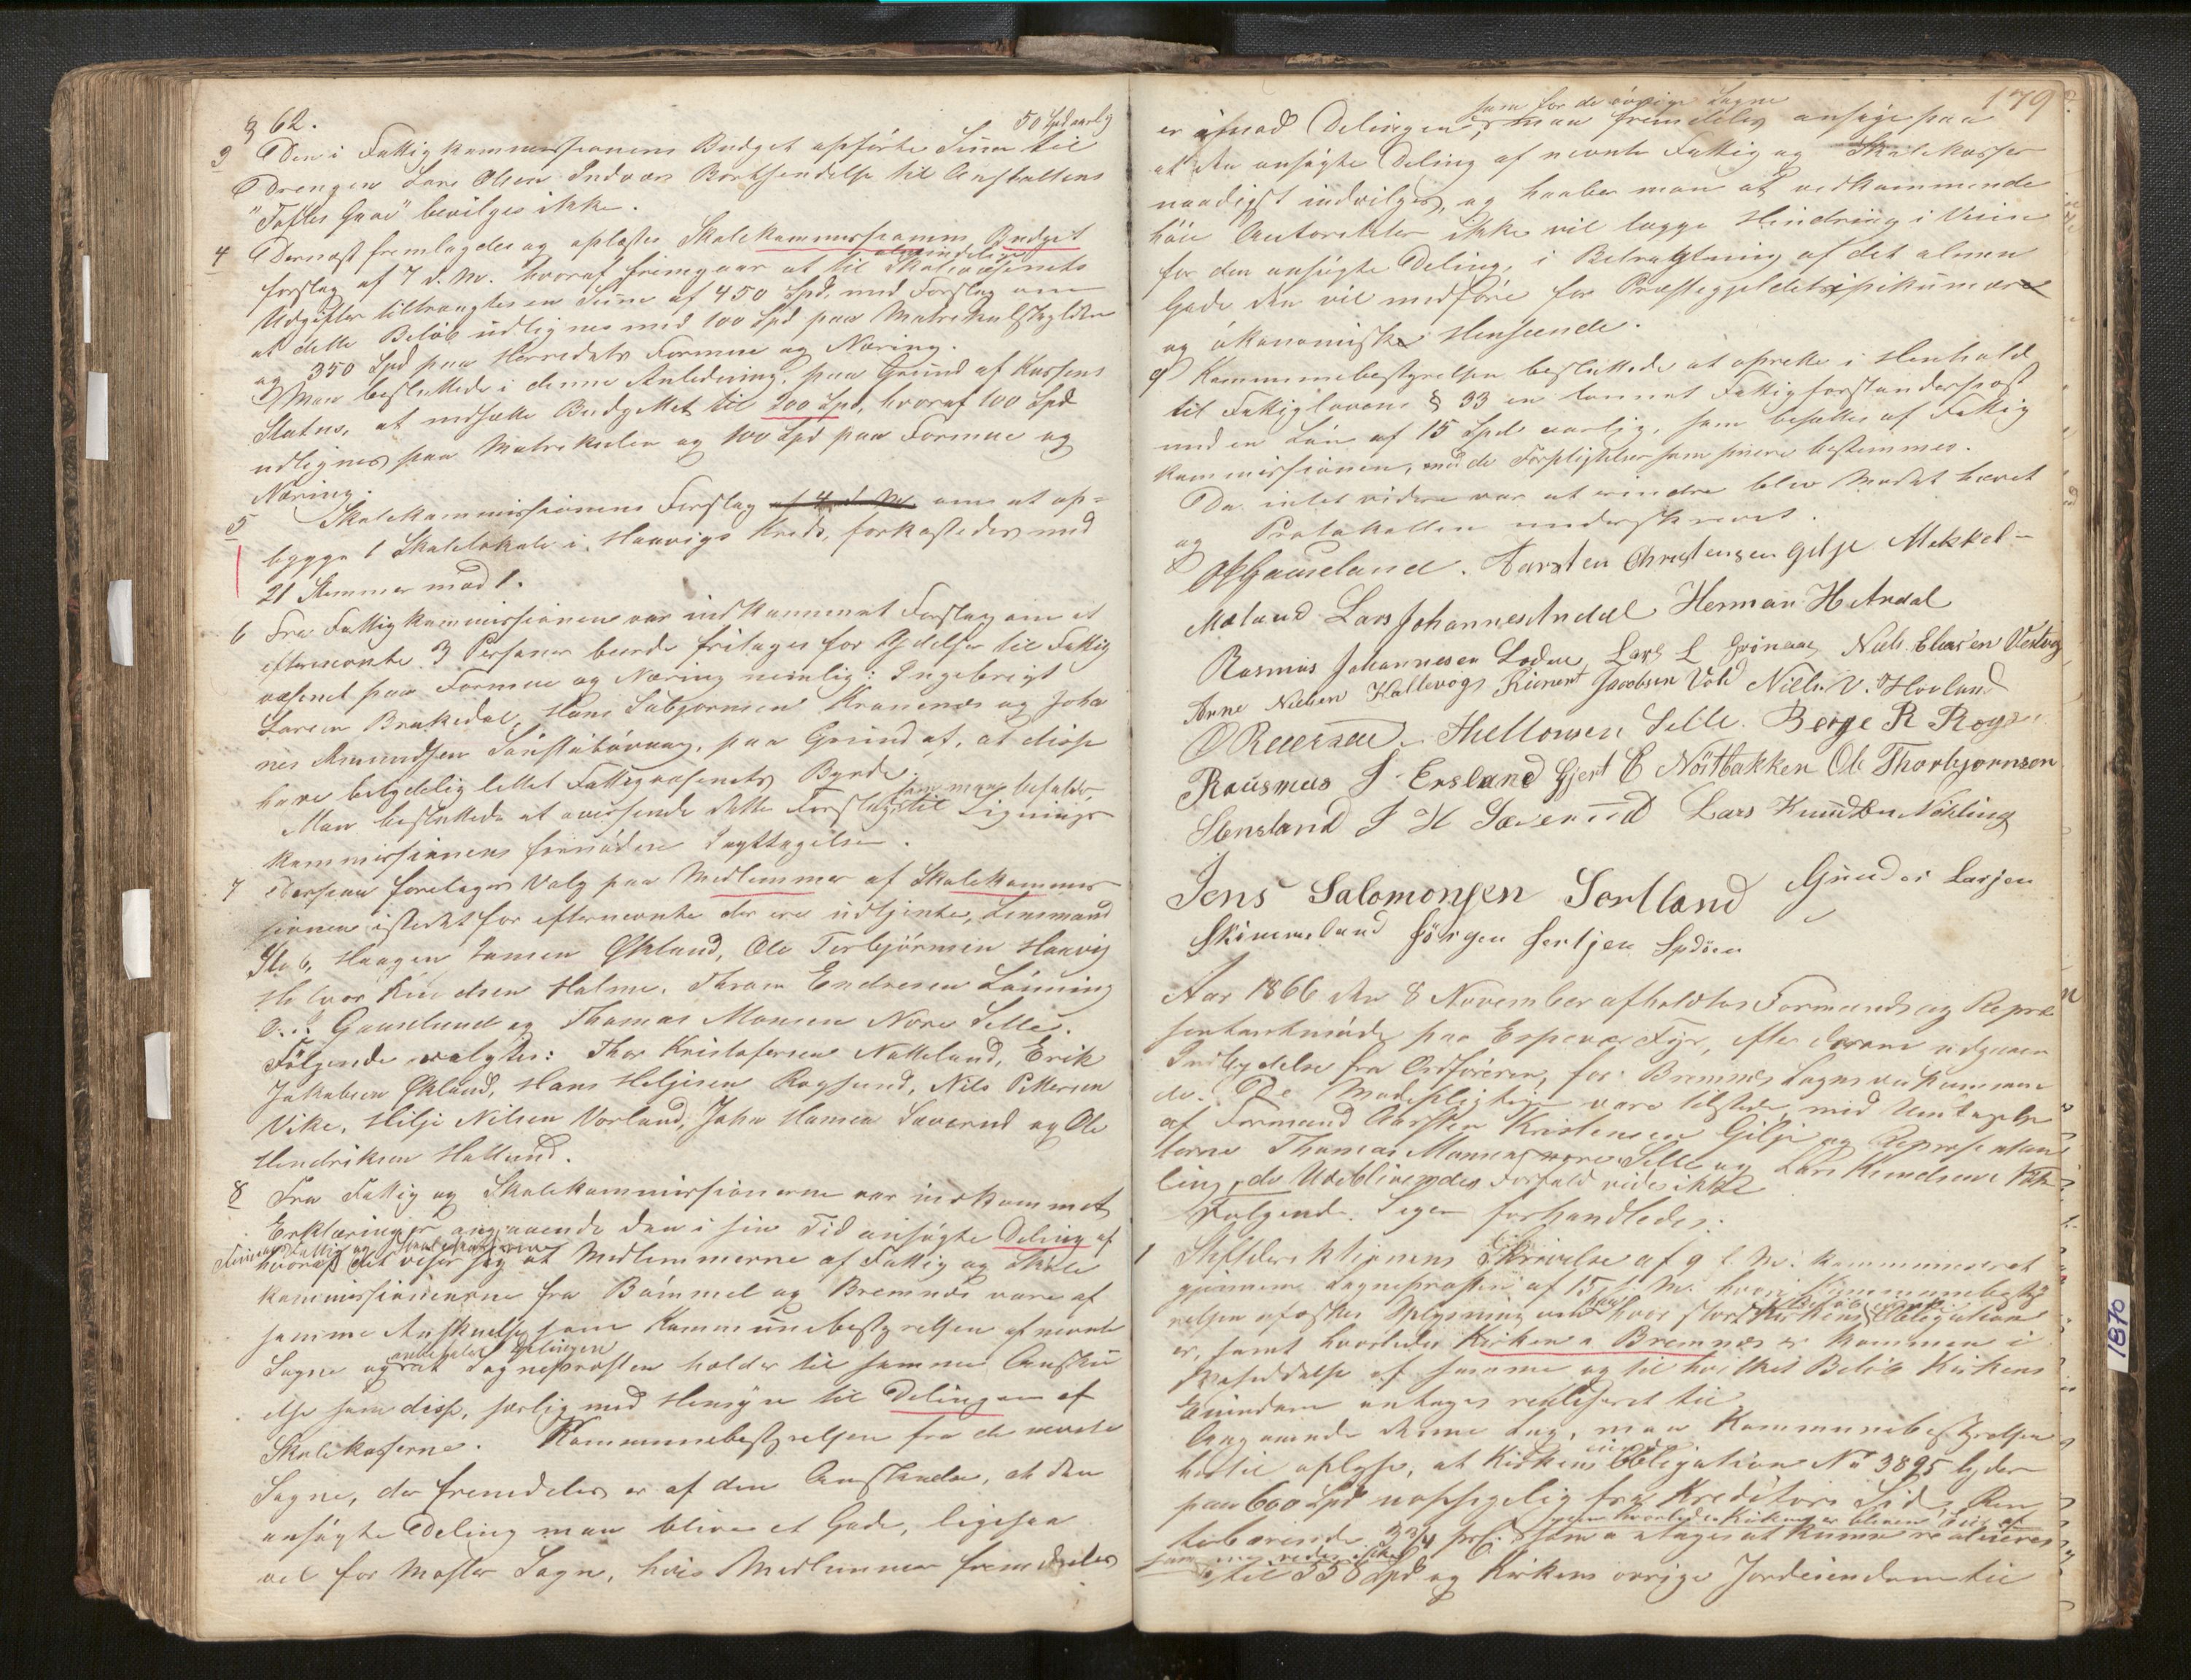 § 62.
50 Spd aarlig
3 Den i Fattigkommissionens Budget opførte Sum til
Drengen Lars Olsen Indvær Bortsendelse til Anstalten
"Toftes Gave" bevilges ikke.
4 Dernæst fremlagdes og oplæstes Skolekommissionens Budget
forslag af 7 d. M. hvoraf fremgaar at til Skolevæsenets
almindelige
Udgifter tiltrængtes en Sum af 450 Spd, med Forslag om
at dette Beløb udlignes med 100 Spd paa Matrikulskylden
og 350 Spd paa Herredets Formue og Næring.
Man besluttede i denne Anledning, paa Grund af Kassens
Status, at nedsætte Budgettet til 200 Spd, hvoraf 100 Spd
udlignes paa Matrikulen og 100 Spd paa Formue og
Næring.
5 Skolekommissionens Forslag af 4 d. M. om at op=
bygge 1 Skolelokale i Haavigs Kreds, forkastedes med
21 Stemmer mod 1.
6 Fra Fattigkommissionen var indkommet Forslag om at
efternævnte 3 Personer burde fritages for Ydelse til Fattig
væsenet paa Formue og Næring nemlig: Ingebrigt
Larsen Brakedal, Hans Sabjørnsen Kranenæs og Joha
nes Amundsen, paa Grund af, at disse
have betydelig lettet Fattigvæsenets Byrde.
som man befaler
Man besluttede at oversende dette Forslag til Lignings
kommissionens fornødne Iagttagelse.
7 Derpaa foretages Valg paa Medlemmer af Skolekommis
sionen istedetfor efternævnte der ere udtjente, Lensmand
Haagen Larsen Økland, Ole Torbjørnsen Haavig
Halvor Knudsen Holme, Thrond Endresen Lønning
O. P. Gauseland og Thomas Monsen Nore Selle.
Følgende valgtes: Thor Kristofersen Natteland, Erik
Jakobsen Økland, Hans Heljesen Røgsund, Nils Pettersen
Vike, Hilje Nilsen Vorland, John Hansen Saverud og Ole
Hendriksen Hallund.
8 Fra Fattig og Skolekommissionerne var indkommet
Erklæringer angaaende den i sin Tid ansøgte Deling af
Finnaas Fattig og Skolekasserne
hvoraf det viser sig at Medlemmerne af Fattig og Skole
kommissionerne fra Bømmel og Bremnæs vare af
samme Anskuelse som Kommunebestyrelsen af nævnte
angaaende Delingen
Sogne og at Sognepræsten holder til samme Ansku
else som disse, særlig med Hensyn til Delingen af
Skolekasserne. Kommunebestyrelsen fra de nævnte
Sogne, der fremdeles er af den Anskuelse, at den
ansøgte Deling maa blive et Gode, ligesaa
vel for Moster Sogn, hvis Medlemmer fremdeles
179
som for de øvrige Sogne
er imod Delingen, maa fremdeles ansøge paa
at den ansøgte Deling af nævnte Fattig og Skolekasser
naadigst indvilges, og haaber man at vedkommende
høie Autoriteter ikke vil lægge Hindring i Veien
for den ansøgte Deling, i Betragtning af det almen
Gode den vil medføre for Præstegjeldet i pikunær
og økonomisk Henseende.
9 Kommunebestyrelsen besluttede at oprette i Henhold
til Fattiglovens § 33 en lønnet Fattigforstanderpost
med en Løn af 15 Spd aarlig, som besættes af Fattig
kommissionen, med de Forpligtelser som senere bestemmes.
Da intet videre var at erindre blev Mødet hævet
og Protokollen underskrevet.
OPGauseland. Aarsten Christensen Gilje Mekkel-
Mæland Lars Johannes Andal Herman H Andal
Rasmus Johannesen Lodne, Lars L Grønaas, Niels Eliasen Vestvig
Arne Nielsen Kallevog Rierert Jacobsen Vold Niels V. Hovland
Th Monsen Selle. Berge R Røgs
Rausmus J. Ersland Gjert E Nøstbakken Ole Thorbjørnsen
Stensland J H Sæverud Lars Knudsen Nøkling
Jens Salomonsen Sortland Gunder Larsen
Skimmeland Jørgen Sertsen
Aar 1866 den 8 November afholdtes Formands og Repræ
sentantmøde paa Espevær Fyr, efter derom udgaaen
Indbydelse fra Ordføreren, for Bremnes Sogns vedkommen
de. De Mødepligtige vare tilstede, med Undtagelse
af Formand Aarsten Kristensen Gilje og Repræsentan
terne Thomas Monsen nore Selle og Lars Knudsen Nøk
ling, de Udeblivendes Forfald vides ikke
Følgende Sager forhandledes:
1 Stiftsdirektionens Skrivelse af 9 f. M. kommuniseret
gjennem Sognepræsten af 15 f. M. hvori Kommunebesty
relsen afæskes Oplysning om hvor stor Kirkens Obligation
er, samt hvorledes Kirken i Bremnæs er kommen i
Besiddelse af samme og til hvilket Beløb Kirkens
Eiendom antages realiseret til
Angaaende denne Sag, maa Kommunebestyrelsen
hertil oplyse, at Kirkens Obligation No 3895 lyder
paa 600 Spd uopsigelig fra Kreditors Side, Ren
tebærende 3 3/4 prC. som antages at kunne realiseres
men hvorledes Kirken er bleven Eier af
som vides ikke
til 558 Spd og Kirkens øvrige Jordeiendom til
1870